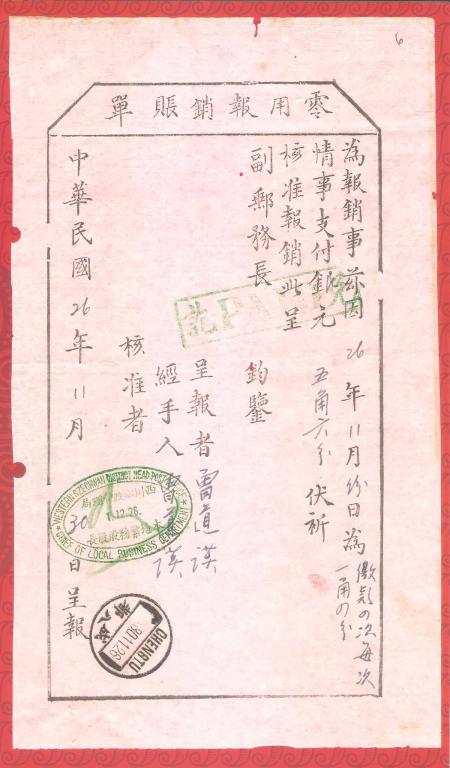 6
零用報銷賬單
為報銷事茲因26年11月份日為繳款四次每次一角四分
情事支付銀元五角六分伏祈
核准報銷此呈
副郵務長鈞鑒
PAID
呈報者雷道瑛
經手人雷道瑛
核准者
中華民國26年11月30日呈報
WESTERN SZECHWAN DISTRICT HEAD POST OFFICE
1.12.26.
CHIEF OF LOCAL BUSINESS DEPARTMENT
CHENGTU
30.11.26